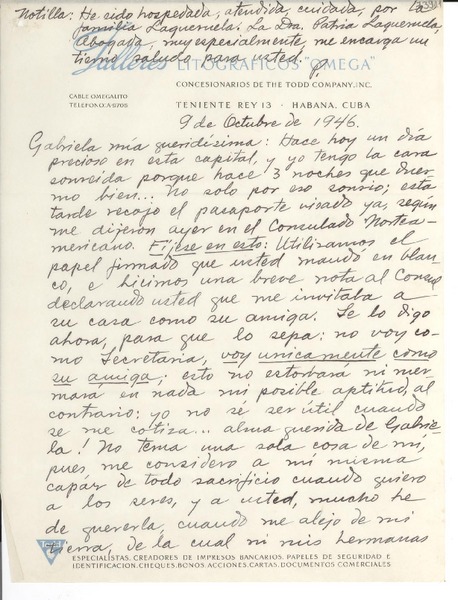 Notilla: He sido hospedada, atendida, cuidada, por la
familia Laqueruela: La Dra. Patria Laqueruela,
Abogada, muy especialmente, me encarga un
tierno saludo para usted.
Talleres LITOGRAFICOS "OMEGA"
CONCESIONARIOS DE THE TODD COMPANY, INC.
CABLE OMEGALITO
TELEFONO: A-8708
TENIENTE REY 13 · HABANA, CUBA
9 de Octubre de 1946.
Gabriela mía queridísima: Hace hoy un día
precioso en esta capital, y yo tengo la cara
sonreida porque hace 3 noches que duer-
mo bien... No solo por eso sonrio; esta
tarde recojo el pasaporte visado ya, según
me dijeron ayer en el Consulado Nortea-
mericano. Fíjese en esto: Utilizamos el
papel firmado que usted mandó en blan-
co, e hicimos una breve nota al Consul
declarando usted que me invitaba a
su casa como su amiga. Se lo digo
ahora, para que lo sepa: no voy co-
mo Secretaria, voy unicamente como
su amiga; esto no estorbará ni mer-
mara en nada mi posible aptitud, al
contrario: yo no se ser útil cuando
se me cotiza... alma querida de Gabrie-
la! No tema una sola cosa de mí,
pues me considero a mí misma
capaz de todo sacrificio cuando quiero
a los seres, y a usted, mucho he
de quererla, cuando me alejo de mi
tierra, de la cual ni mis hermanas
ESPECIALISTAS, CREADORES DE IMPRESOS BANCARIOS, PAPELES DE SEGURIDAD E
IDENTIFICACION, CHEQUES, BONOS, ACCIONES, CARTAS, DOCUMENTOS COMERCIALES